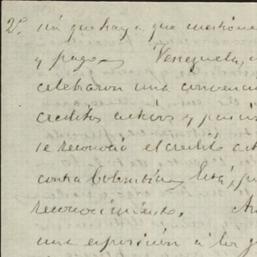 2º. ni que haya que cuestione
y pago. Venezuela,
celebraron una convenci
creditos activos y pasi
se reconoció el credito
contra Colombia. Está,
reconocimiento.
una exposición á los g